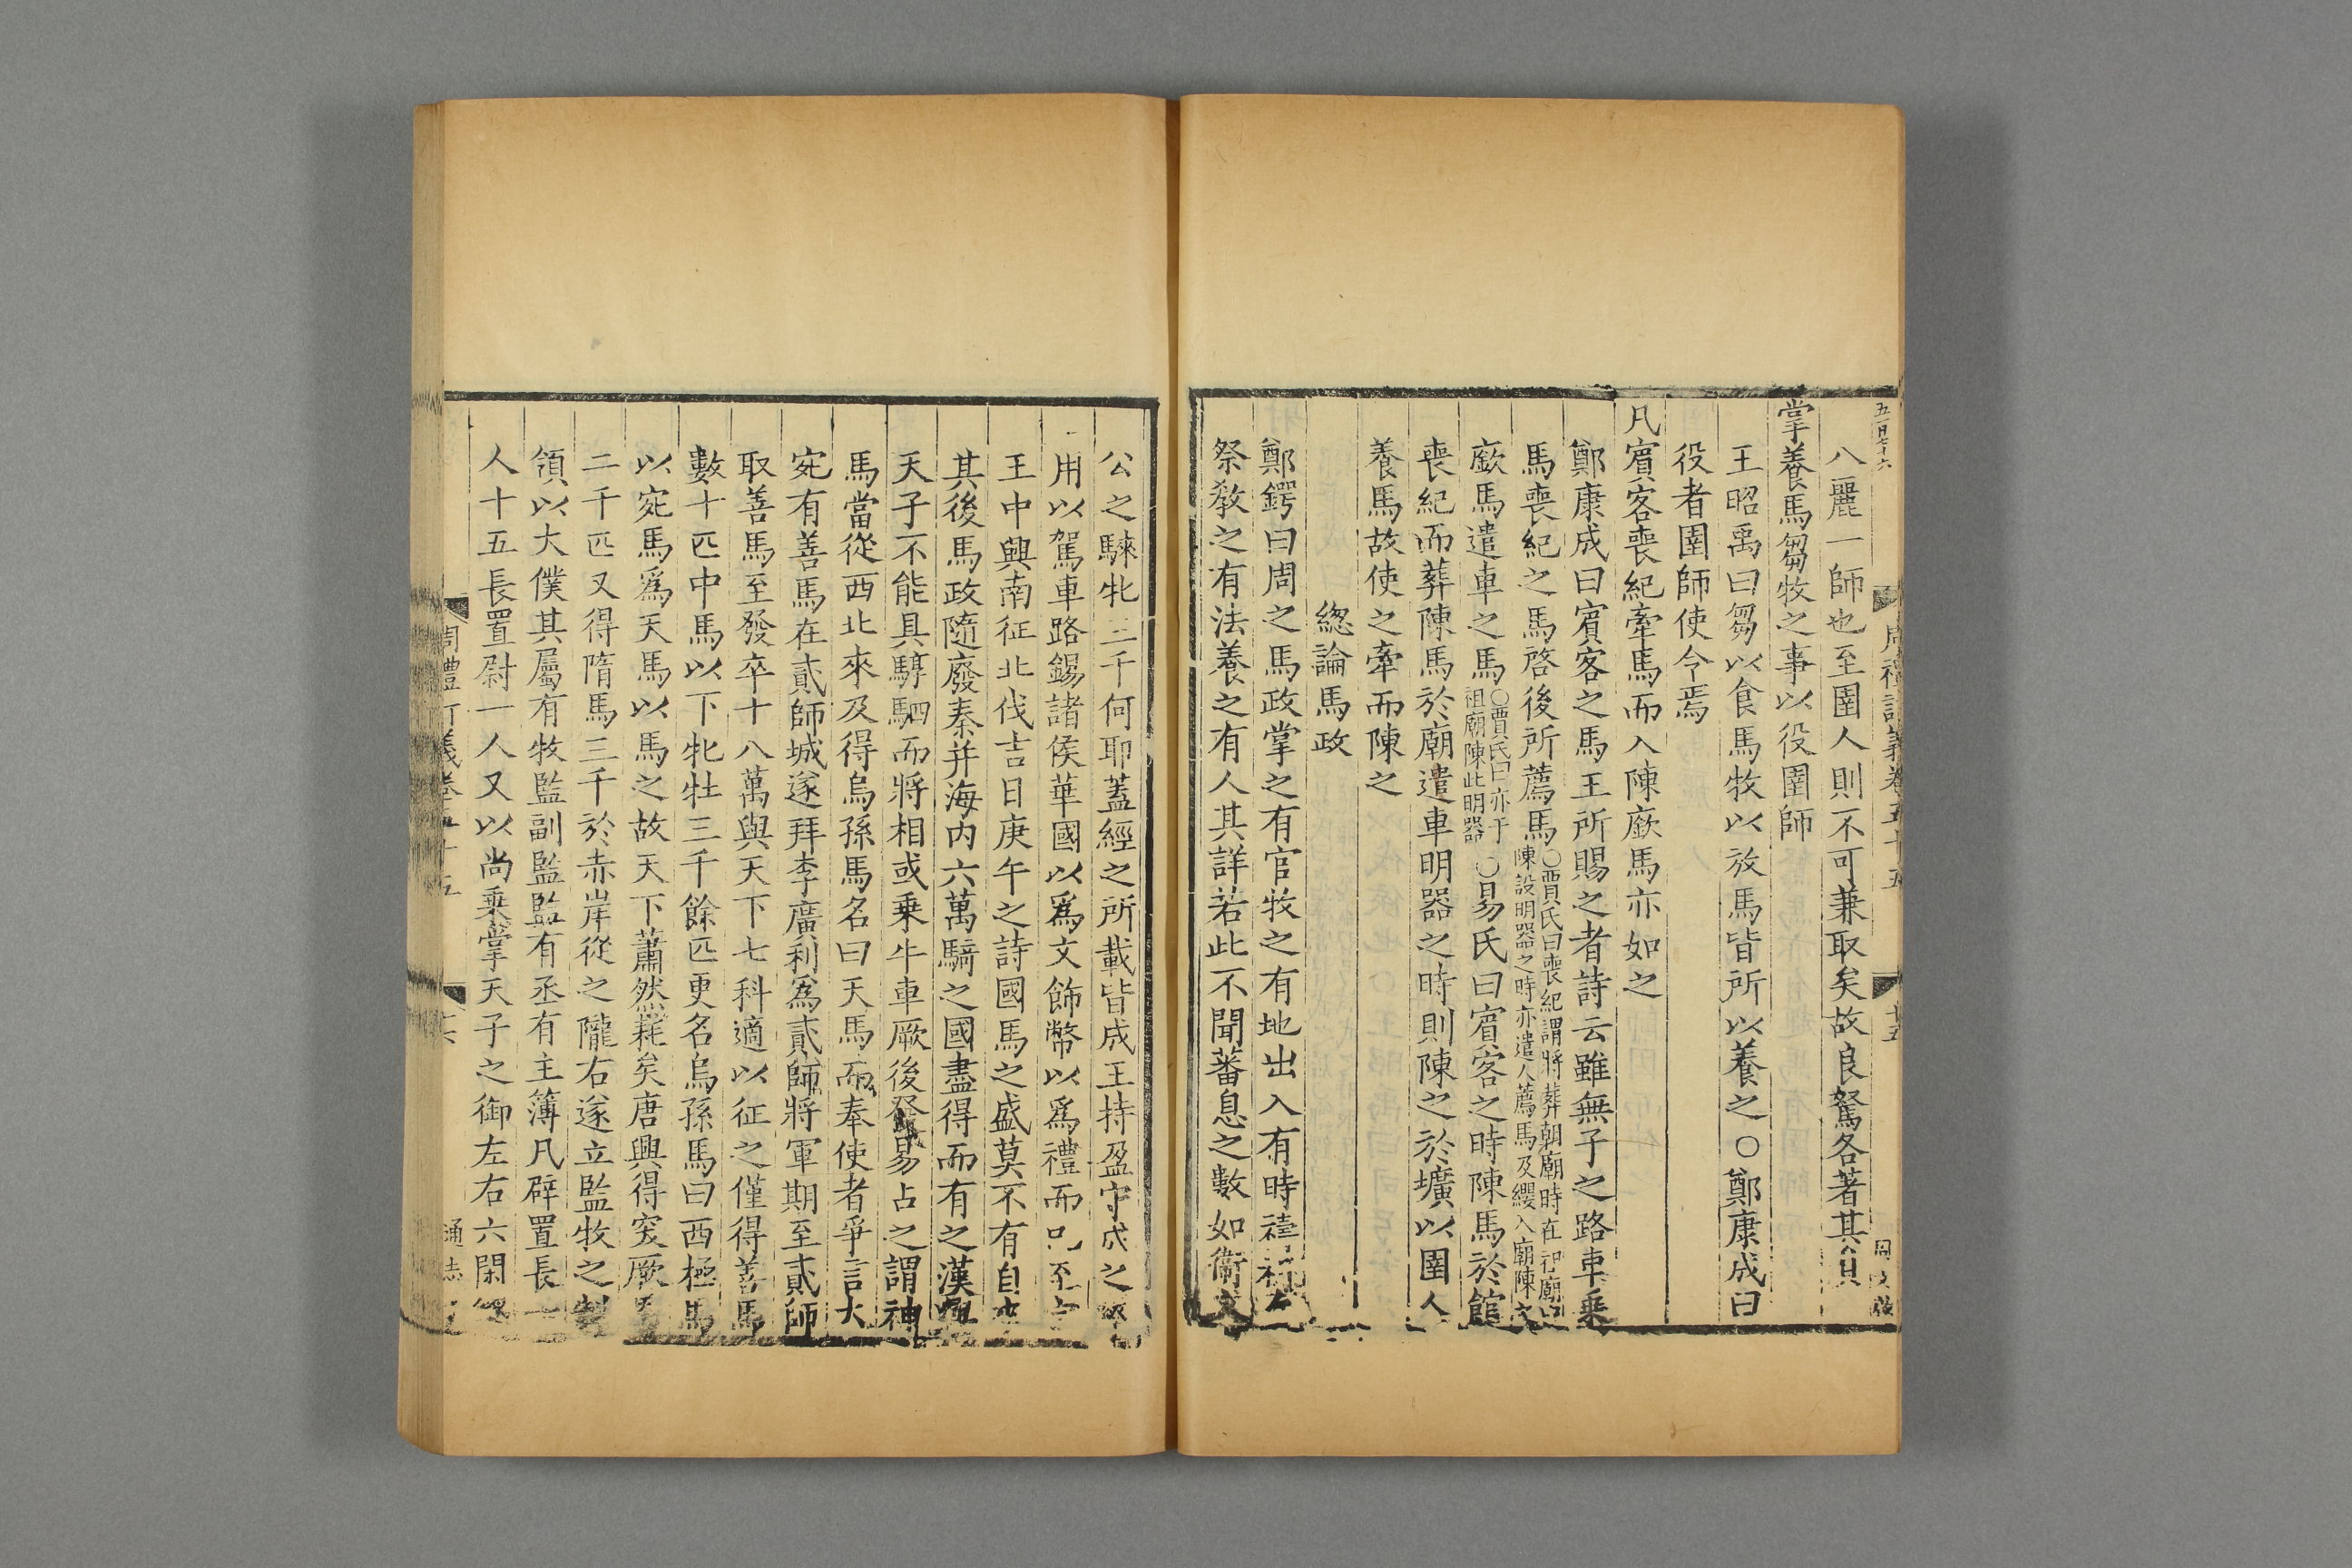 五百七十六 周禮訂義卷五十五 十五
八麗一師也至圉人則不可兼取矣故良駑各著其
掌養馬芻牧之事以役圉師
王昭禹曰芻以食馬牧以放馬皆所以養之○鄭康成曰
役者圉師使令焉
凡賓客喪紀牽馬而入陳廞馬亦如之
鄭康成曰賓客之馬王所賜之者詩云雖無予之路車乗
馬喪紀之馬啓後所薦馬○賈氏曰喪紀謂將葬朝廟時在祖廟中陳設明器之時亦遣人薦馬及纓入廟陳之
廞馬遣車之馬○賈氏曰亦于祖廟陳此明器○易氏曰賓客之時陳馬於館
喪紀而葬陳馬於廟遣車明器之時則陳之於壙以圉人
養馬故使之牽而陳之
緫論馬政
鄭鍔曰周之馬政掌之有官牧之有地出入有時
祭教之有法養之有人其詳若此不聞蕃息之數如衞文
公之騋牝三千何耶蓋經之所載皆成王持盈守成之
用以駕車路錫諸侯華國以爲文飾幣以爲禮而
王中興南征北伐吉日庚午之詩國馬之盛莫不有自
其後馬政隨廢秦并海内六萬騎之國盡得而有之漢
天子不能具騂駟而將相或乗牛車厥後發易占之謂神
馬當從西北來及得烏孫馬名曰天馬而奉使者爭言大
宛有善馬在貳師城遂拜李廣利爲貳師將軍期至貳師
取善馬至發卒十八萬與天下七科適以征之僅得善馬
數十匹中馬以下牝牡三千餘匹更名烏孫馬曰西極馬
以宛馬爲天馬以馬之故天下蕭然耗矣唐興得突厥馬
二千匹又得隋馬三千於赤岸從之隴右遂立監牧之制
領以大僕其屬有牧監副監監有丞有主簿凡辟置長一
人十五長置尉一人又以尚乗掌天子之御左右六閑
周禮訂義卷五十五 十六 通志